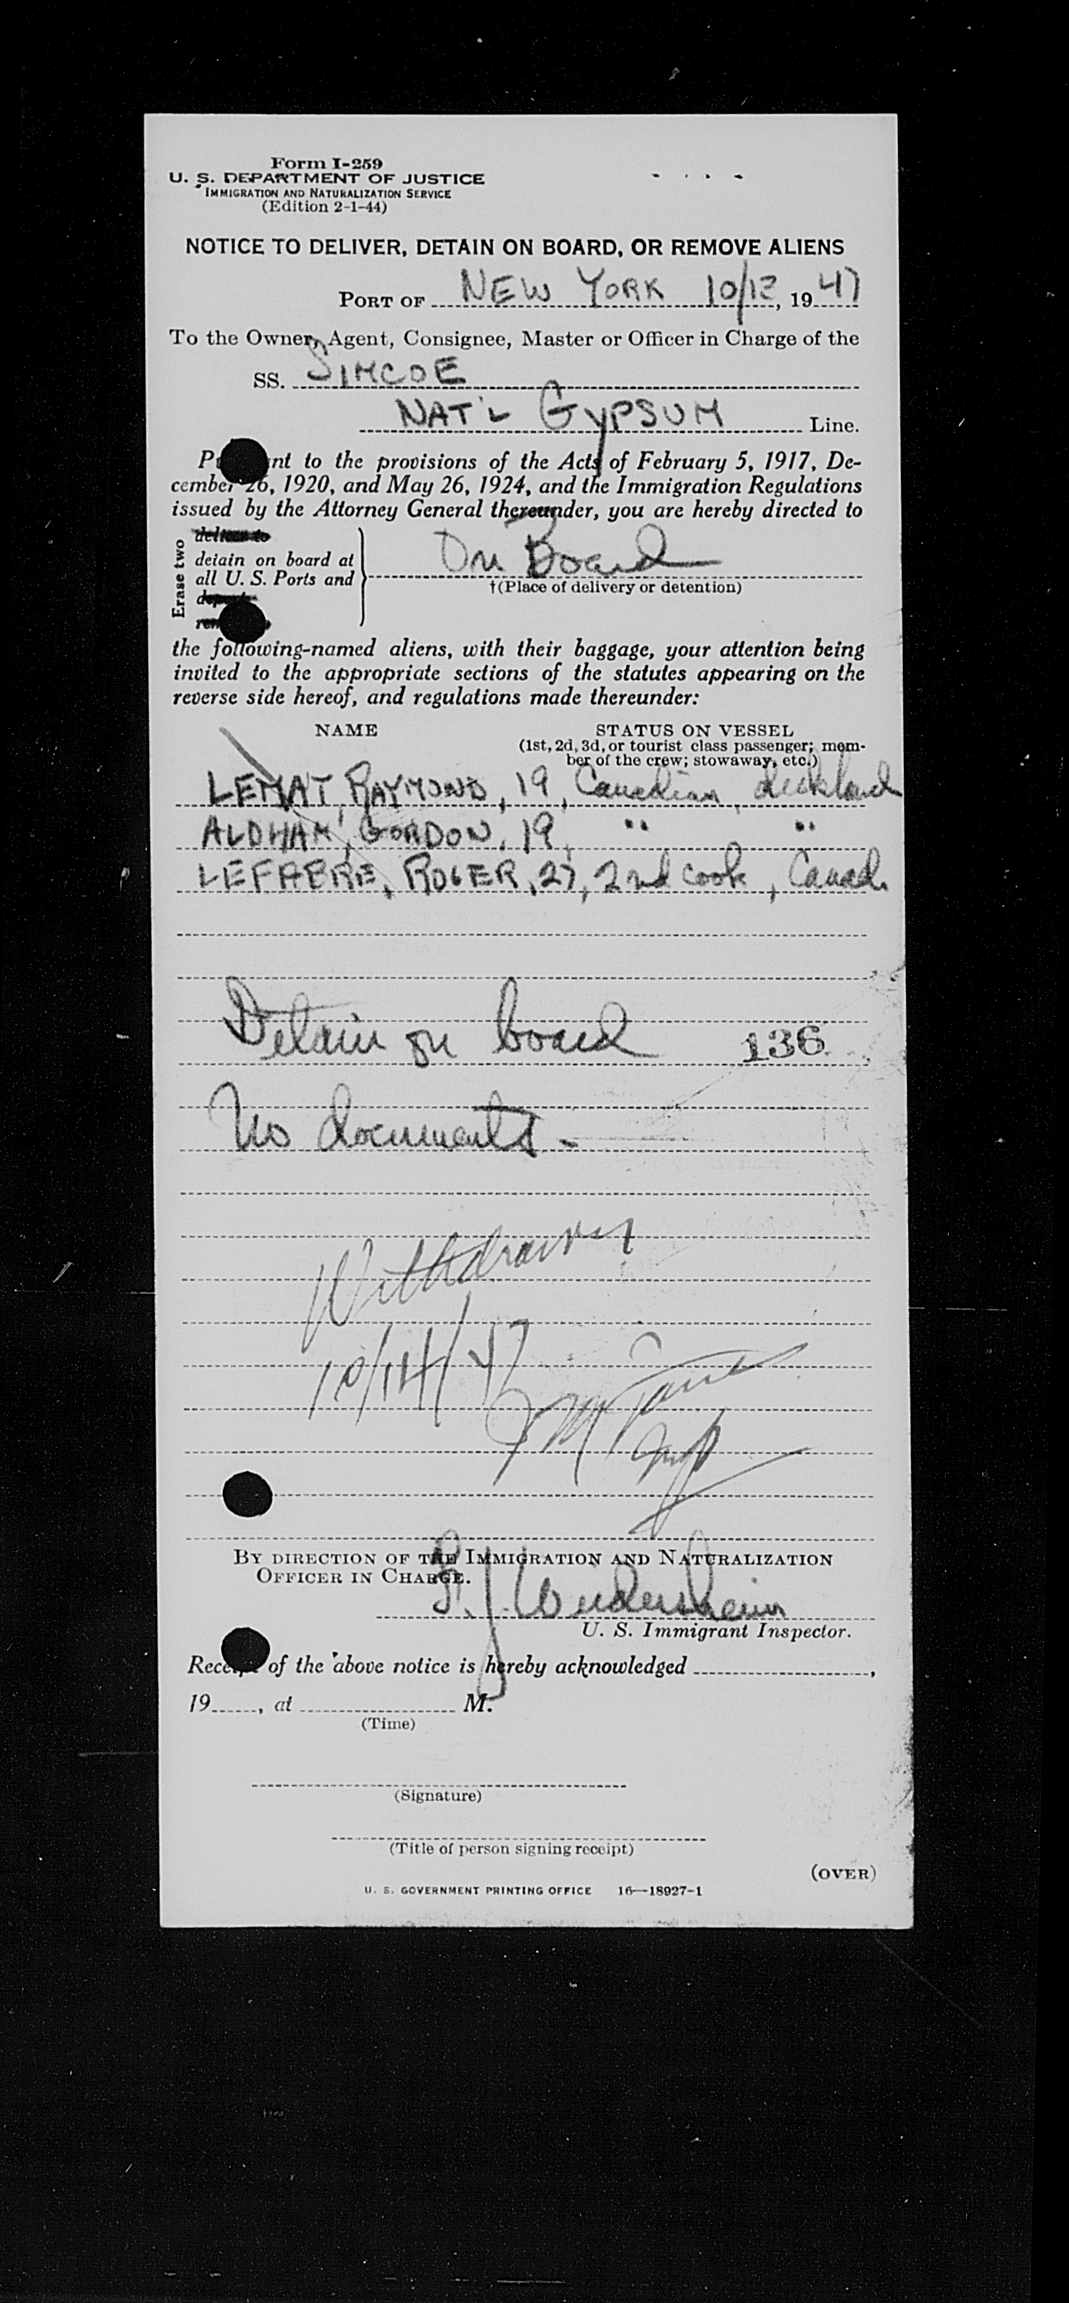 Form I-259
U. S. DEPARTMENT OF JUSTICE
IMMIGRATION AND NATURALIZATION SERVICE
(Edition 2-1-44)
NOTICE TO DELIVER, DETAIN ON BOARD, OR REMOVE ALIENS
PORT OF NEW YORK 10/12, 1947
To the Owner, Agent, Consignee, Master or Officer in Charge of the
SS. SIMCOE
NAT'L GYPSUM Line.
nt to the provisions of the Acts of February 5, 1917, De-
cember 26, 1920, and May 26, 1924, and the Immigration Regulations
issued by the Attorney General thereunder, you are hereby directed to
Erase two
deliver to
detain on board at
all U. S. Ports and
On Board
†(Place of delivery or detention)
the following-named aliens, with their baggage, your attention being
invited to the appropriate sections of the statutes appearing on the
reverse side hereof, and regulations made thereunder:
NAME STATUS ON VESSEL
(1st, 2d, 3d, or tourist class passenger; mem-
ber of the crew; stowaway, etc.)
LEMAT, RAYMOND, 19, Canadian, deckhand
ALDHAM, GORDON, 19, " "
LEFABRE, ROGER, 27, 2nd cook, Canad.
Detain on board 136
No documents -
Withdrawn
10/14/47
Insp
BY DIRECTION OF THE IMMIGRATION AND NATURALIZATION
OFFICER IN CHARGE.
F. J. Weidersheim
U. S. Immigrant Inspector.
Receipt of the above notice is hereby acknowledged ,
19 , at M.
(Time)
(Signature)
(Title of person signing receipt)
(OVER)
U. S. GOVERNMENT PRINTING OFFICE 16—18927-1